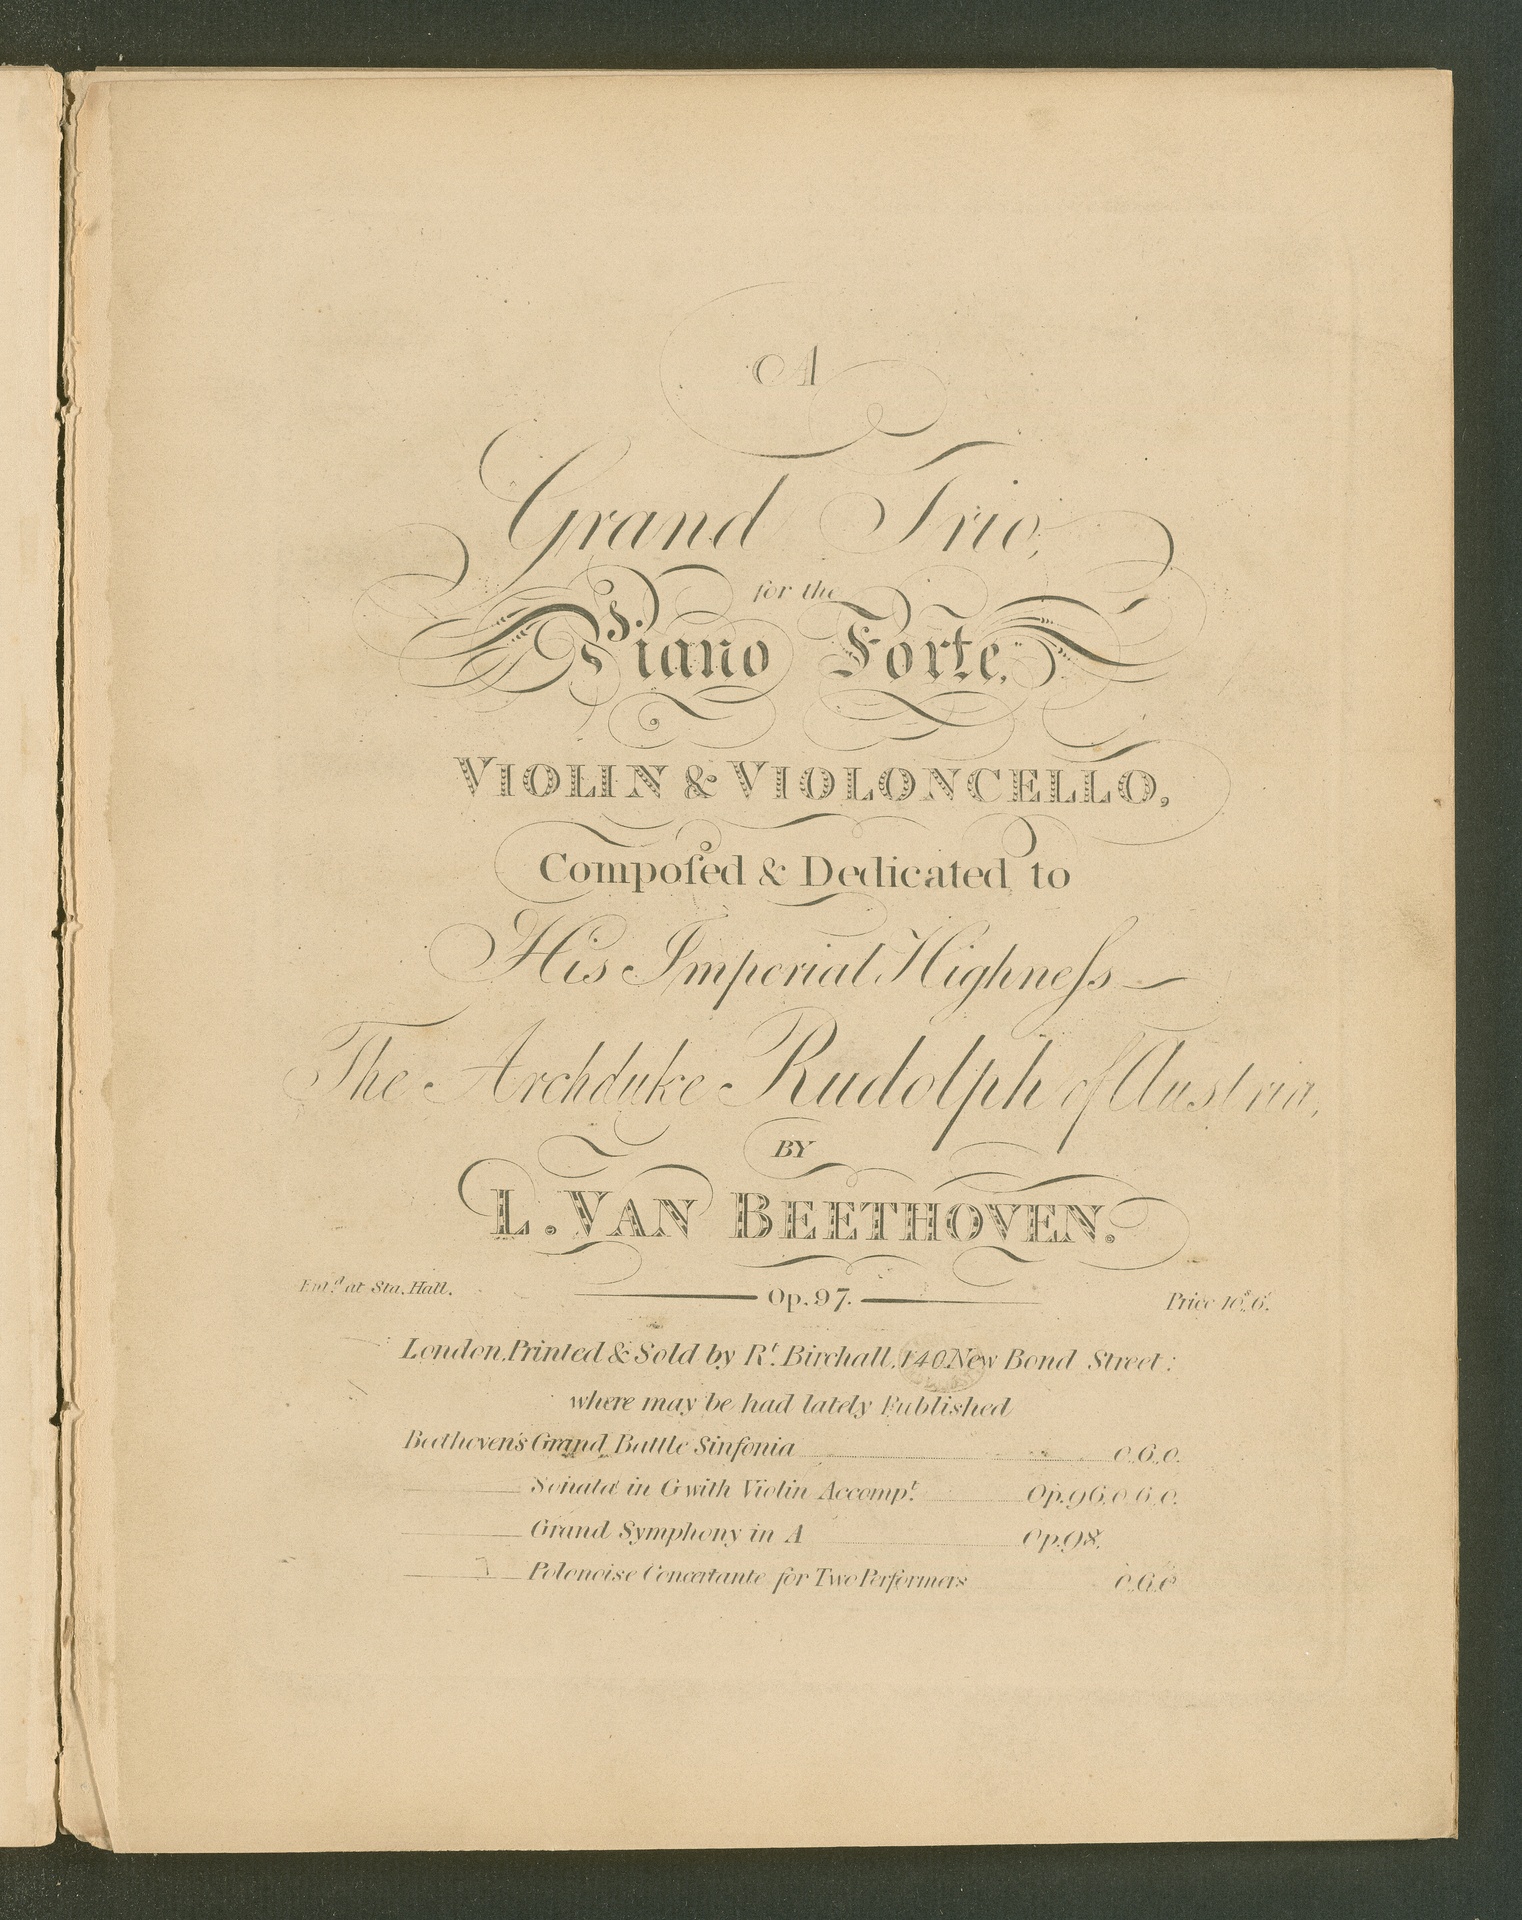 A
Grand Trio,
for the
Piano Forte,
VIOLIN & VIOLONCELLO,
Compoſed & Dedicated to
His Imperial Highneſs
The Archduke Rudolph of Austria,
BY
L. VAN BEETHOVEN.
Ent.d at Sta. Hall.
Op. 97.
Price 10.s 6.d
London, Printed & Sold by R.t Birchall, 140 New Bond Street:
where may be had lately Published
Beethoven's Grand Battle Sinfonia 0.6.0.
Sonata in G with Violin Accomp.t Op. 96. 0.6.0.
Grand Symphony in A Op. 98.
Polonoise Concertante for Two Performers